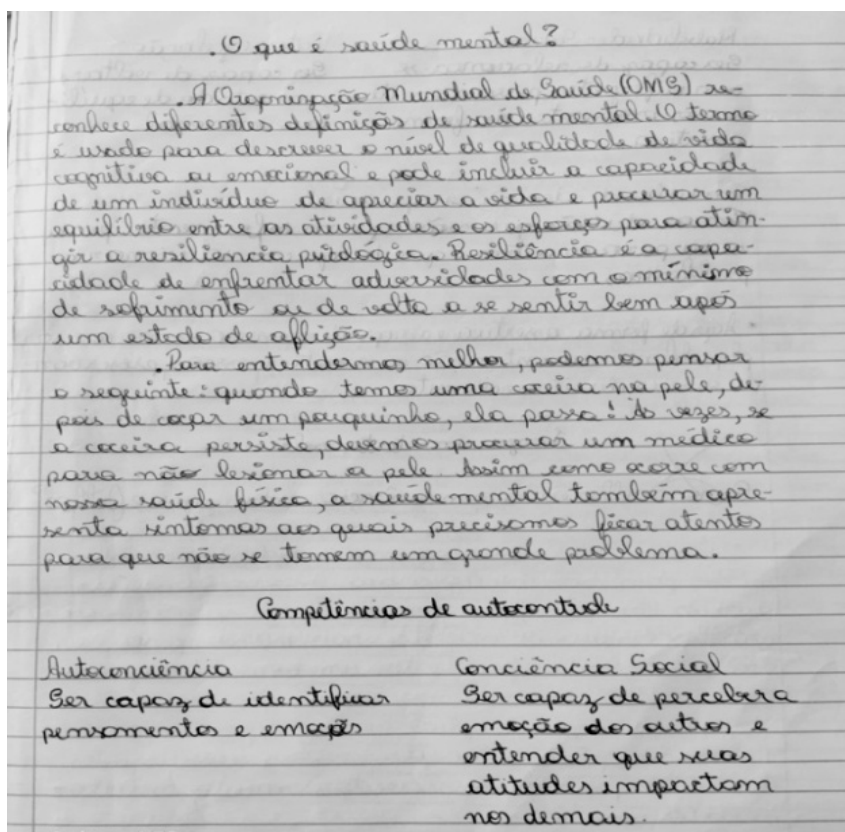 . O que é saúde mental?
. A Organização Mundial de Saúde (OMS) re-
conhece diferentes definiçõs de saúde mental. O termo
é usado para descrever o nível de qualidade de vida
cognitiva ou emocional e pode incluir a capacidade
de um indivíduo de apreciar a vida e procurar um
equilíbrio entre as atividades e os esforços para atin-
gir a resiliencia psicológica. Resiliência é a capa-
cidade de enfrentar adversidades com o mínimo
de sofrimento ou de volta a se sentir bem após
um estado de aflição.
. Para entendermos melhor, podemos pensar
o seguinte: quando temos uma coceira na pele, de-
pois de coçar um pouquinho, ela passa! Às vezes, se
a coceira persiste, devemos procurar um médico
para não lesionar a pele. Assim como ocorre com
nossa saúde física, a saúde mental também apre-
senta sintomas aos quais precisamos ficar atentos
para que não se tornem um grande problema.
Competências de autocontrole
Autoconciência
Ser capaz de identificar
pensamentos e emoçõs
Conciência Social
Ser capaz de perceber a
emoção dos outros e
entender que suas
atitudes impactam
nos demais.